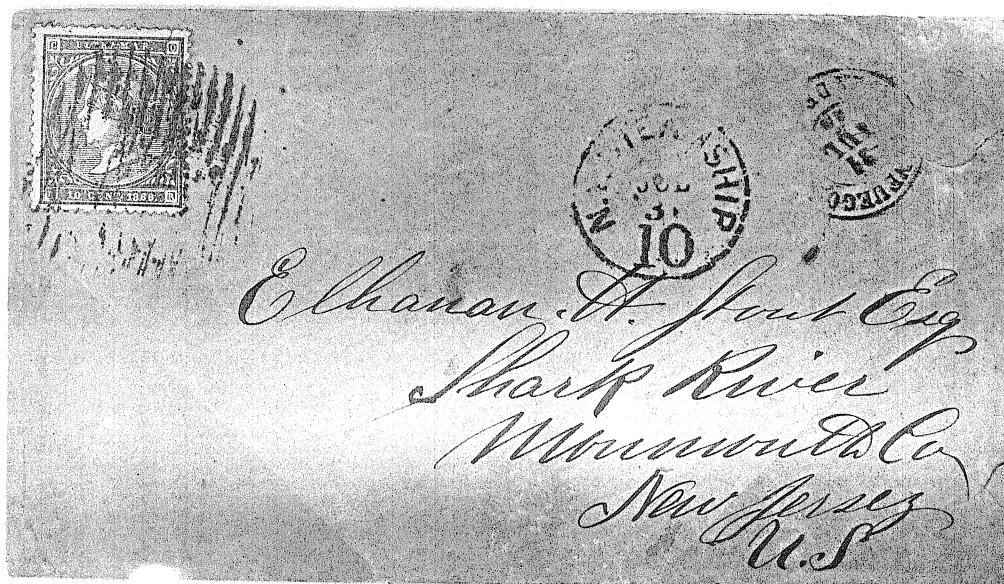 ULTRAMAR
10 CENT 1868
N.Y. STEAMSHIP
JUL
31
10
31
JUL
Elhanan. H. Stout Esq
Shark River
Monmouth Co
New Jersey
U.S